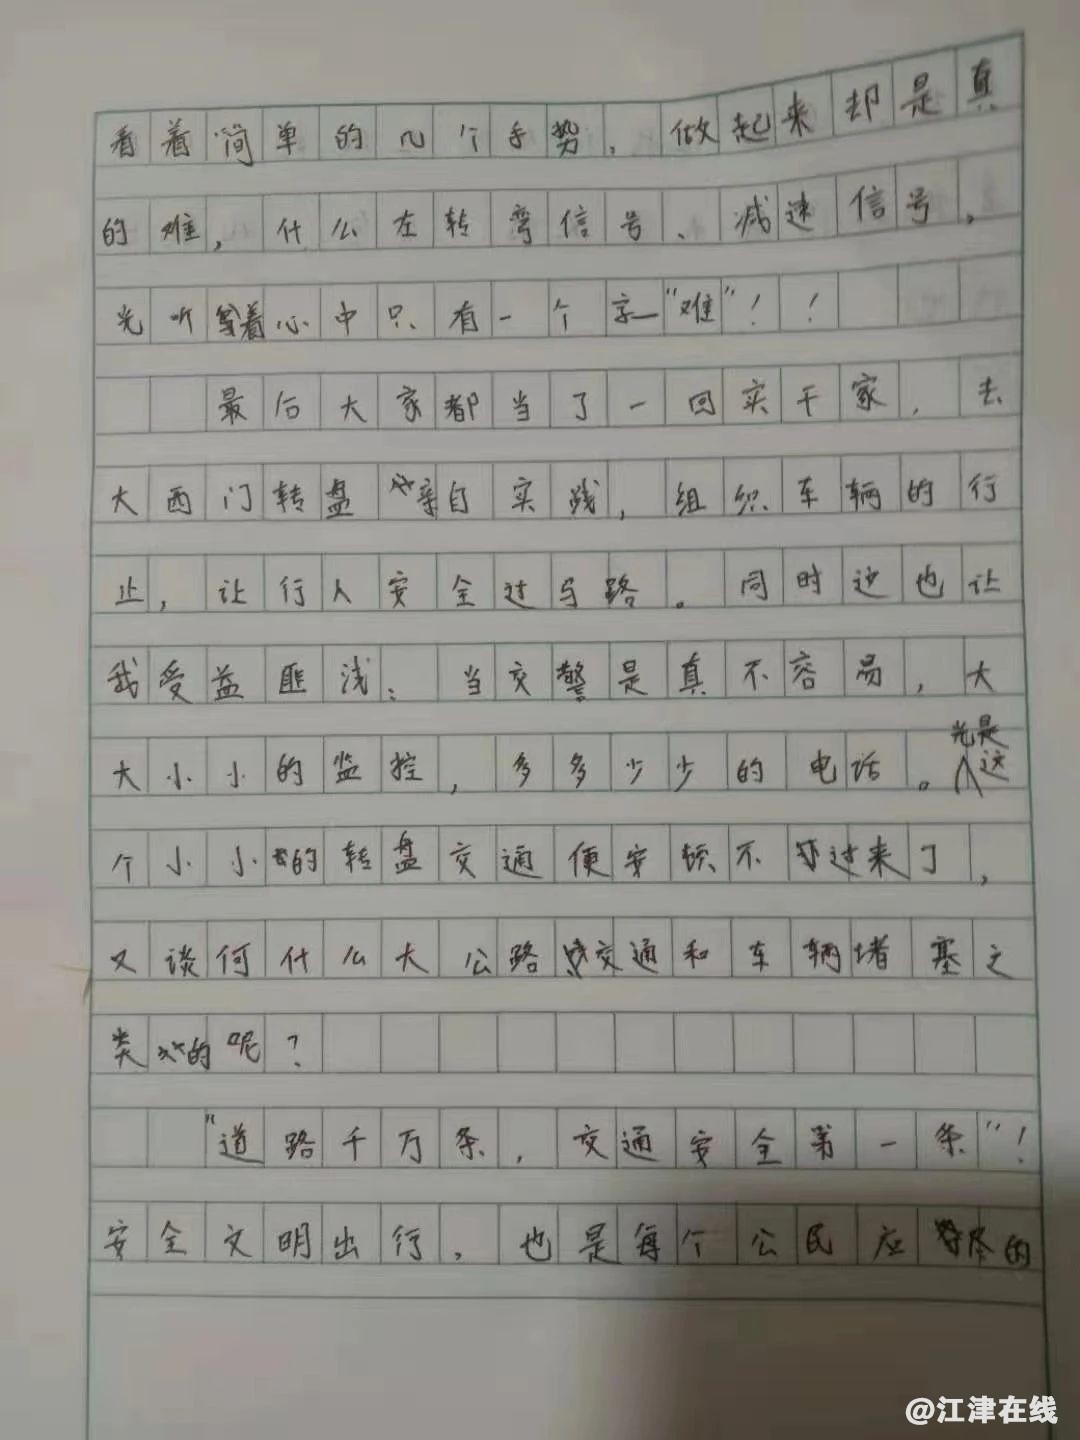 看着简单的几个手势，做起来却是真
的难，什么左转弯信号、减速信号，
光听着心中只有一个字—"难"！！
最后大家都当了一回实干家，去
大西门转盘亲自实践，组织车辆的行
止，让行人安全过马路。同时这也让
我受益匪浅：当交警是真不容易，大
大小小的监控，多多少少的电话。光是这
个小小的转盘交通便安顿不过来了，
又谈何什么大公路交通和车辆堵塞之
类的呢？
"道路千万条，交通安全第一条"！
安全文明出行，也是每个公民应尽的
@江津在线